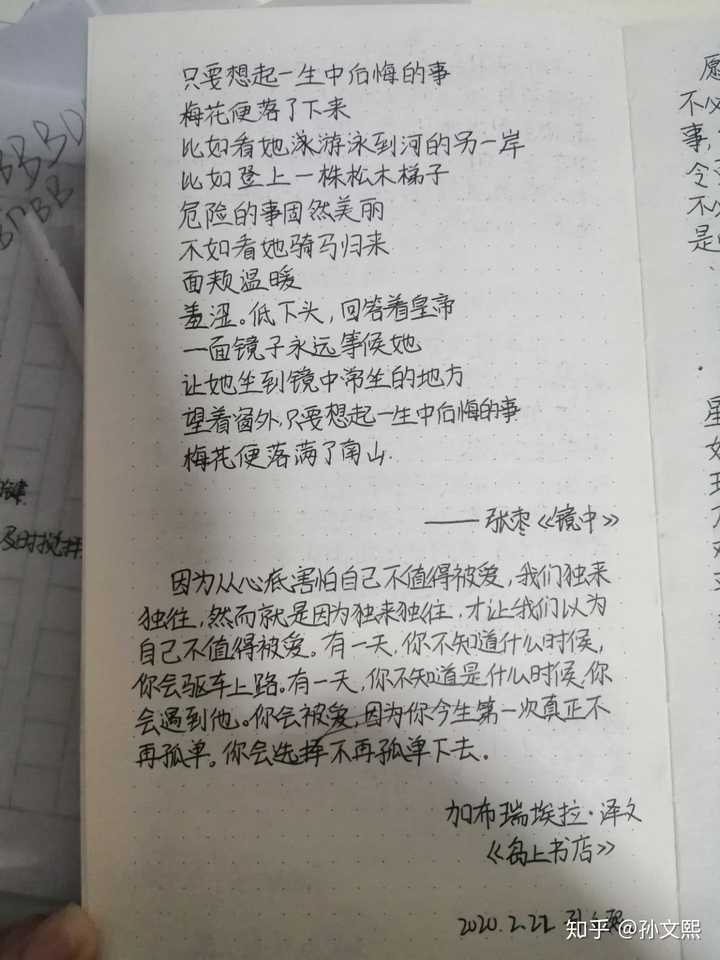 只要想起一生中后悔的事
梅花便落了下来
比如看她泳游泳到河的另一岸
比如登上一株松木梯子
危险的事固然美丽
不如看她骑马归来
面颊温暖
羞涩。低下头，回答着皇帝
一面镜子永远等候她
让她坐到镜中常坐的地方
望着窗外，只要想起一生中后悔的事
梅花便落满了南山.
——张枣《镜中》
因为从心底害怕自己不值得被爱，我们独来
独往，然而就是因为独来独往，才让我们以为
自己不值得被爱。有一天，你不知道什么时候，
你会驱车上路。有一天，你不知道是什么时候，你
会遇到他。你会被爱，因为你今生第一次真正不
再孤单。你会选择不再孤单下去。
加布瑞埃拉·泽文
《岛上书店》
2020.2.22
愿
不必
事，
令
不
是
星
如
BBB
知乎 @孙文熙